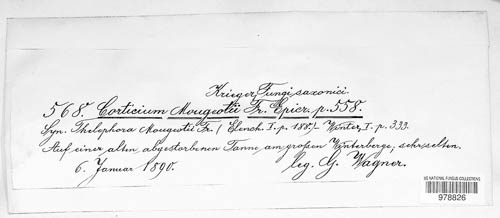 Krieger, Fungi saxonici.
568. Corticium Mougeotii Fr. Epicr. p. 558.
Syn. Thelephora Mougeotii Fr. (Elench. I. p. 188.) – Winter, I. p. 333.
Auf einer alten, abgestorbenen Tanne am großen Winterberge, sehr selten.
6. Januar 1890. leg. G. Wagner.
US NATIONAL FUNGUS COLLECTIONS
978826